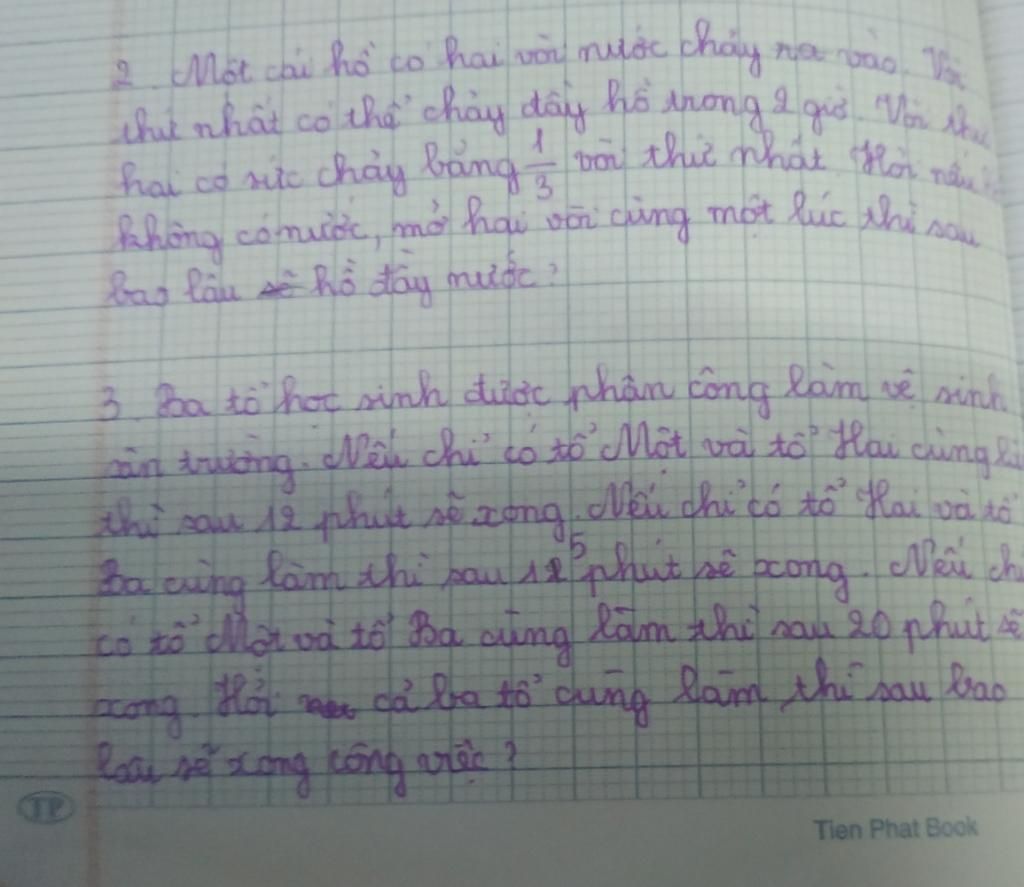 2. Một cái hồ có hai vòi nước chảy ra vào. Vòi
thứ nhất có thể chảy đầy hồ trong 2 giờ. Vòi thứ
hai có sức chảy bằng 1/3 vòi thứ nhất. Hỏi nếu
không có nước, mở hai vòi cùng một lúc thì sau
bao lâu hồ đầy nước?
3. Ba tổ học sinh được phân công làm vệ sinh
sân trường. Nếu chỉ có tổ Một và tổ Hai cùng
thì sau 12 phút sẽ xong. Nếu chỉ có tổ Hai và tổ
Ba cùng làm thì sau 15 phút sẽ xong. Nếu chỉ
có tổ Một và tổ Ba cùng làm thì sau 20 phút sẽ
xong. Hỏi cả ba tổ cùng làm thì sau bao
lâu sẽ xong công việc?
TP
Tien Phat Book